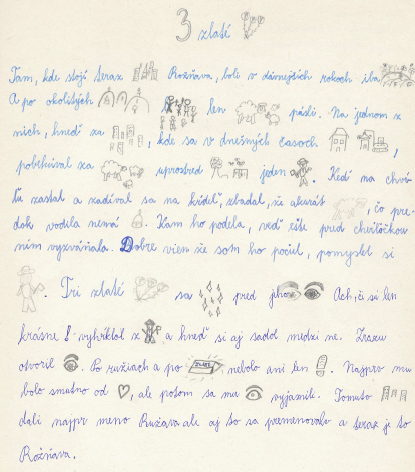 3 zlaté
Tam, kde stojí teraz Rožňava, boli v dávnejších rokoch iba
A po okolitých len pásli. Na jednom z
nich, hneď za , kde sa v dnešných časoch ,
pobehával za uprostred jeden . Keď na chví-
ľu zastal a zadíval sa na kŕdeľ, zbadal, že akurát , čo pre-
dok vodila nemá . Kam ho podela, veď ešte pred chvíľočkou
ním vyzváňala. Dobre viem že som ho počul, pomyslel si
. Tri zlaté sa pred jeho Ach, či sú len
krásne! vyhŕklo z a hneď si aj sadol medzi ne. Zrazu
otvoril . Po ružiach a po nebolo ani len . Najprv mu
bolo smutno od , ale potom sa mu vyjasnili. Tomuto
dali najpr meno Ružava ale aj to sa premenovalo a teraz je to
Rožňava.